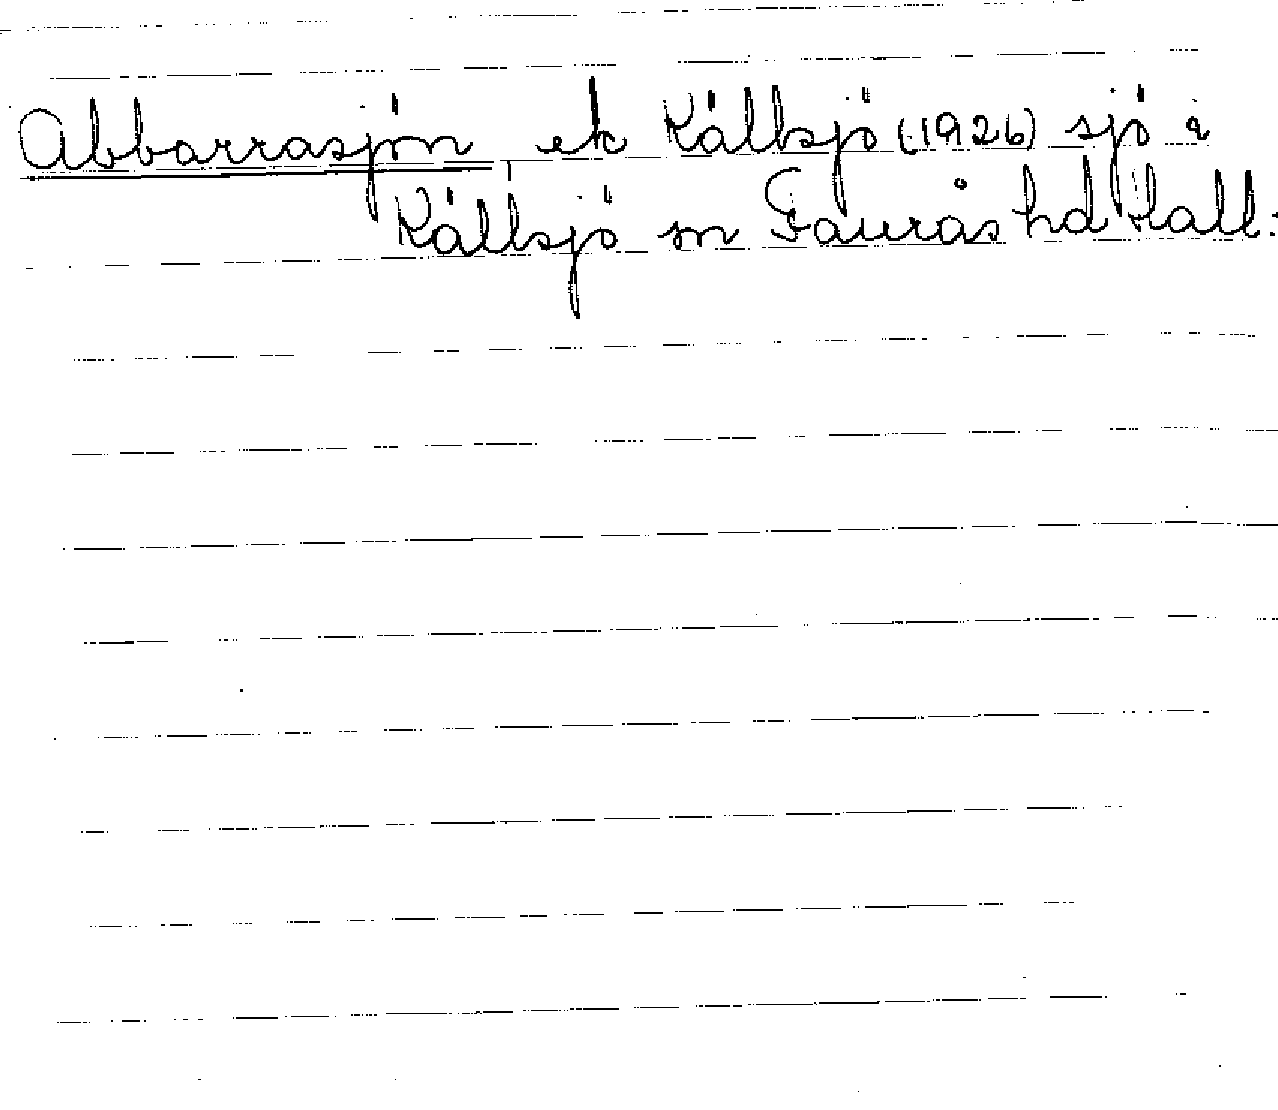 Abbarrasjön, ek Källsjö (1926) sjö i
Källsjö sn Faurås hd Hall.